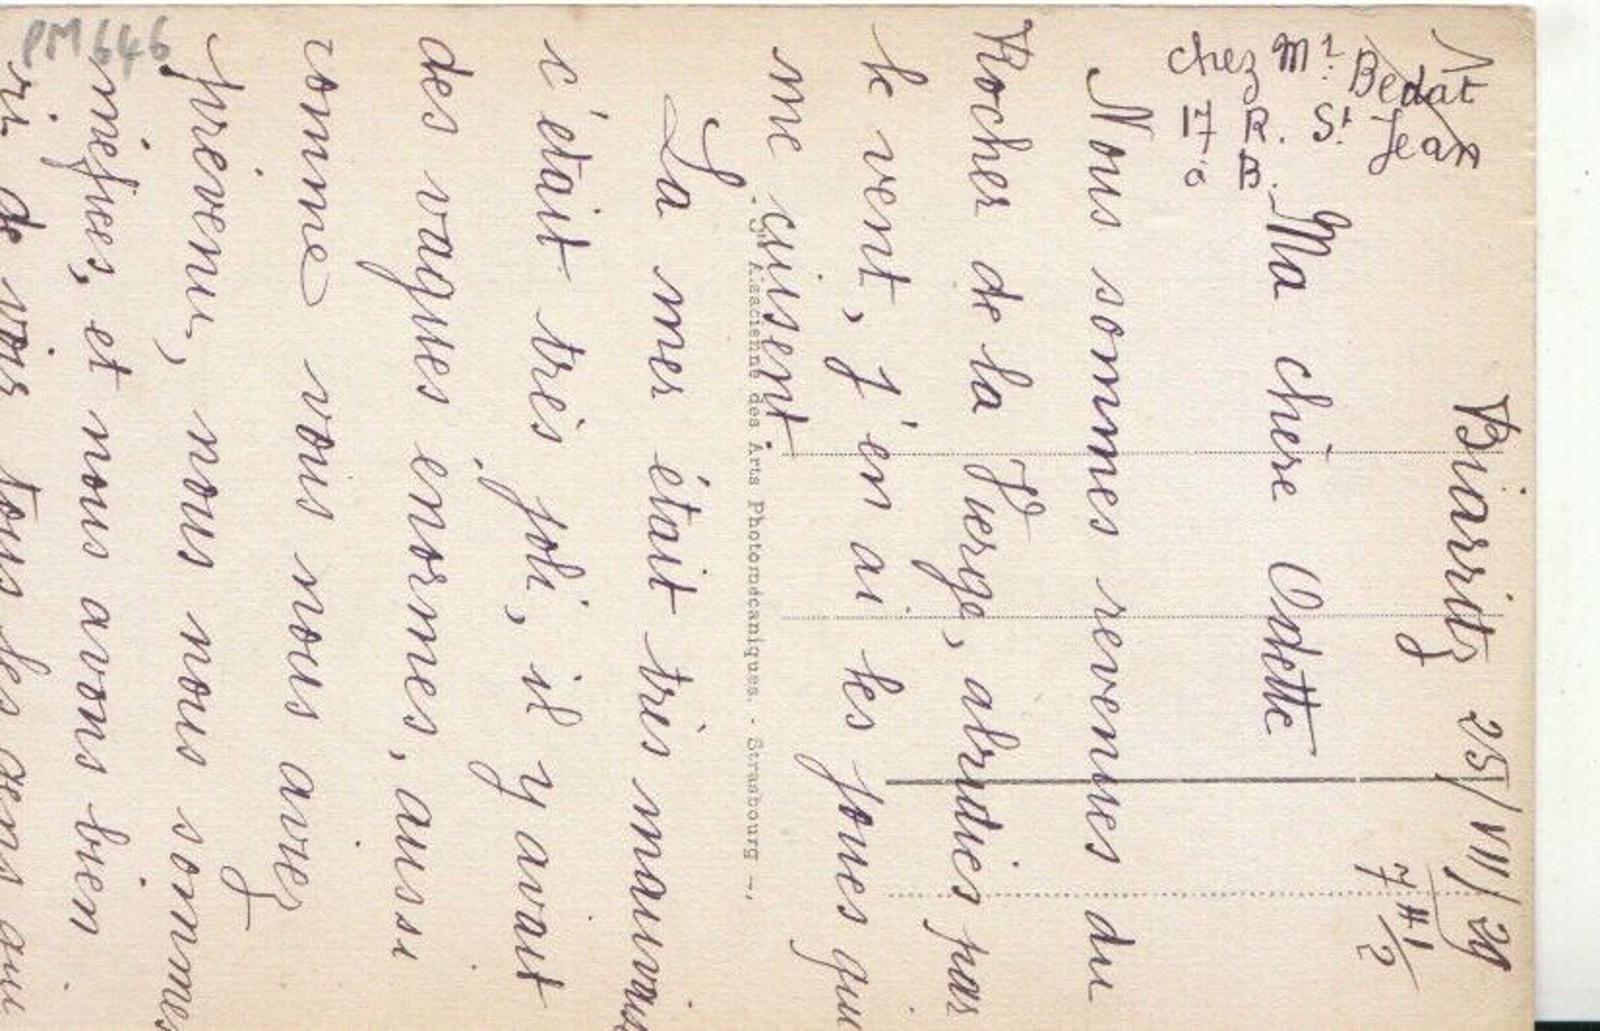 Biarritz 25/VII/29
7 H 1/2
1st
chez Mr. Bedat
17 R. St. Jean
à B.
Ma chère Odette
Nous sommes revenues du
Rocher de la Vierge, abruties par
le vent, j'en ai les joues qui
me cuisent.
La mer était très mauvaise
c'était très joli, il y avait
des vagues enormes, aussi
comme vous nous aviez
prévenu, nous nous sommes
méfiées, et nous avons bien
ri de voir tous les gens qui
- Sté Alsacienne des Arts Photomécaniques. - Strasbourg -
PM646